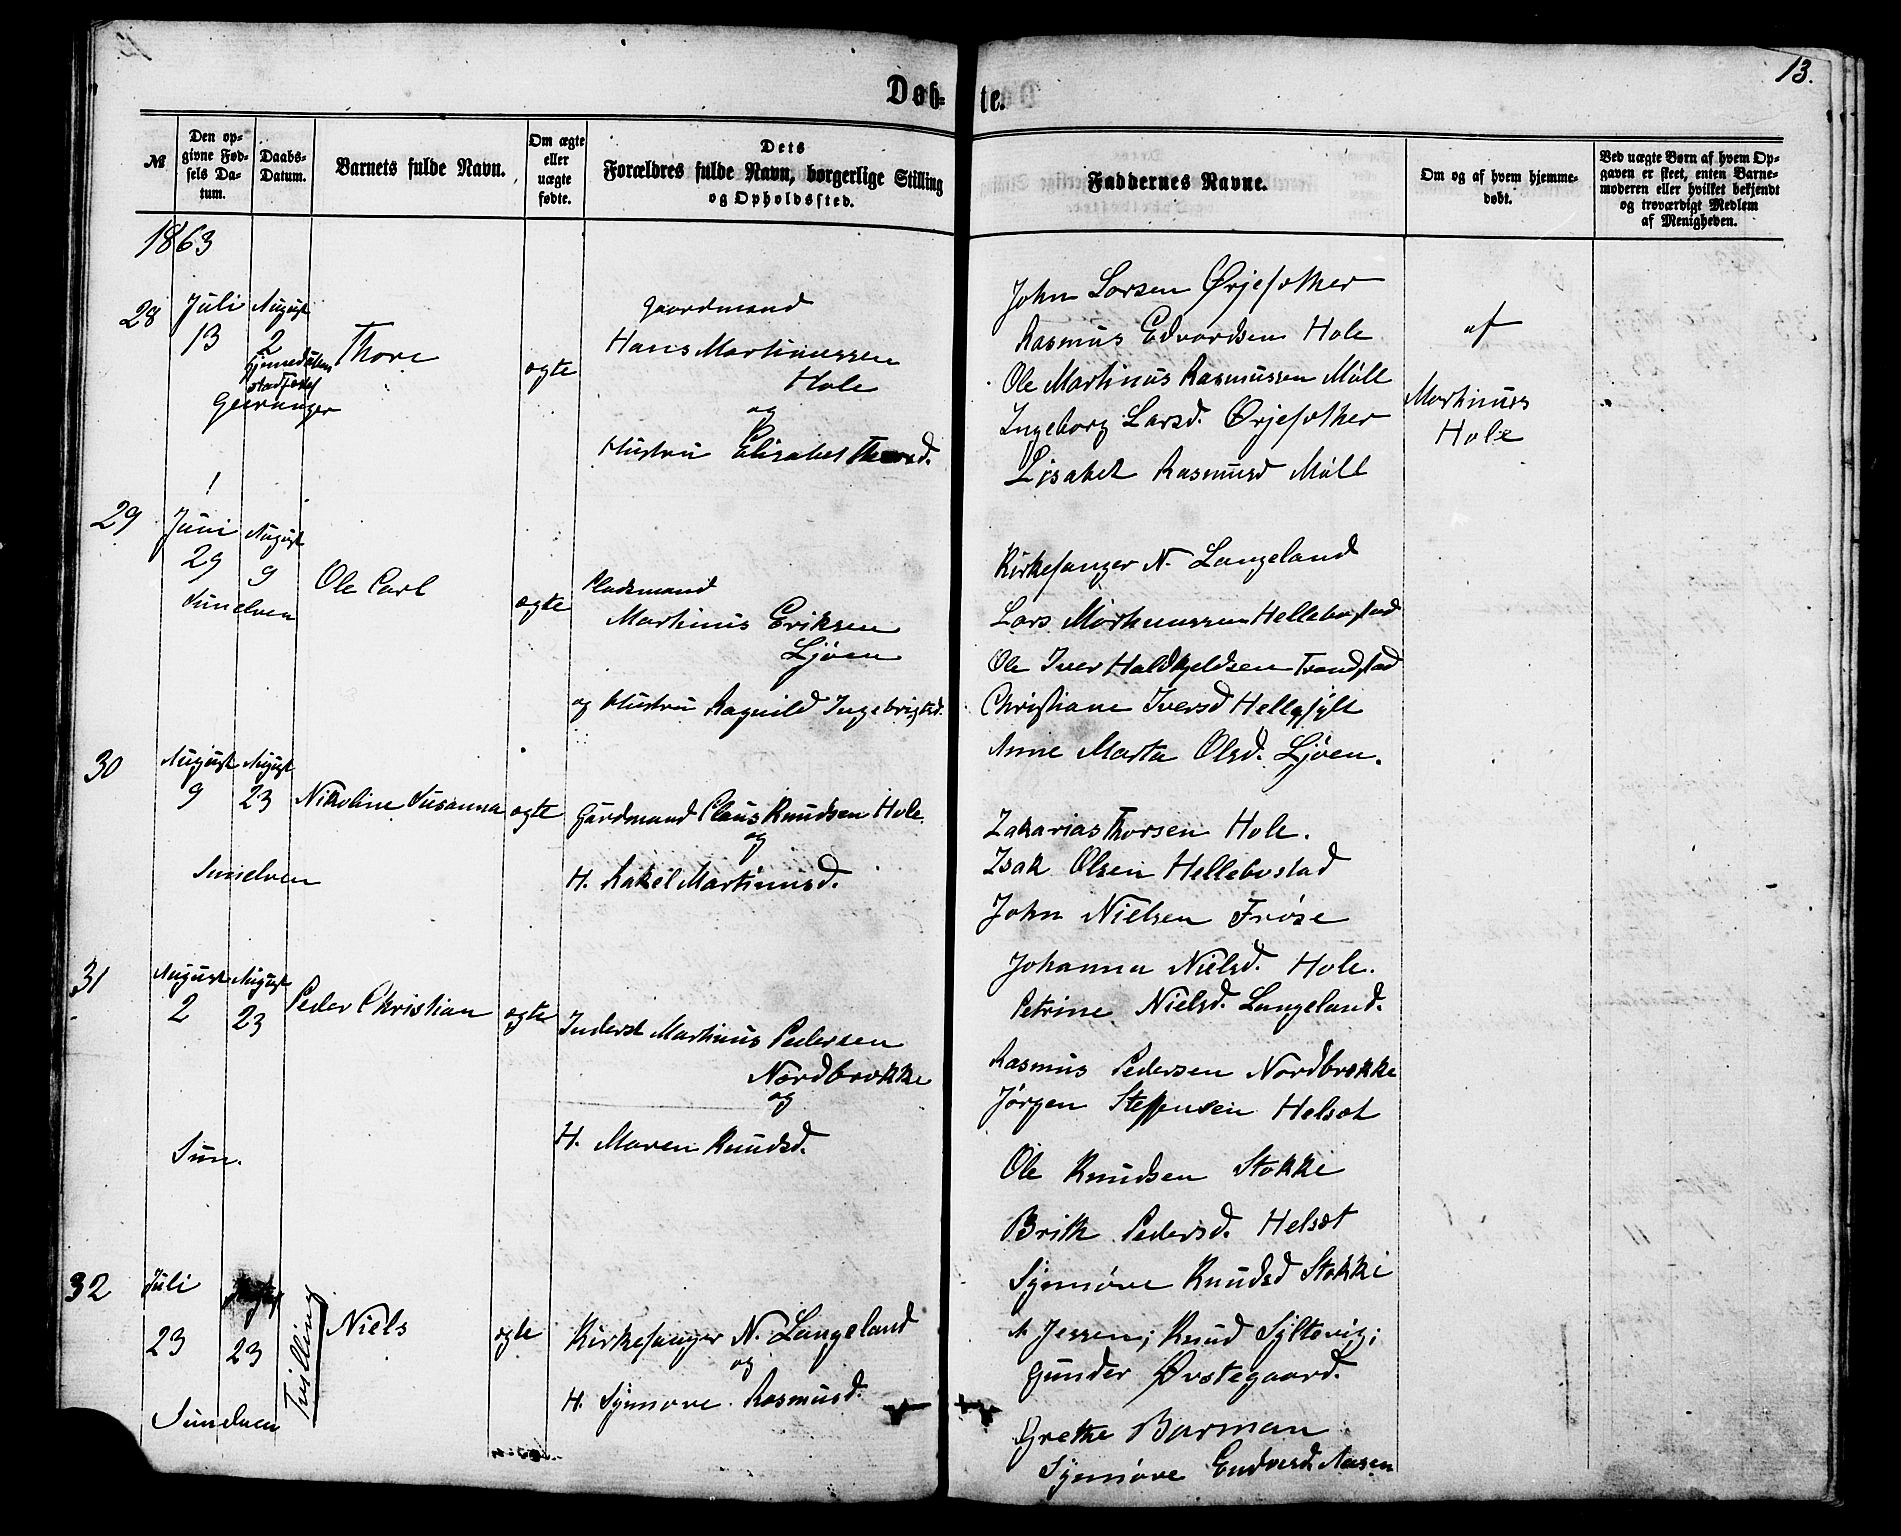 13.
Døb-te.
№
Den op-
givne Fød-
sels Da-
tum.
Daabs-
Datum.
Barnets fulde Navn.
Om ægte
eller
uægte
fødte.
Dets
Forældres fulde Navn, borgerlige Stilling
og Opholdssted.
Faddernes Navne.
Om og af hvem hjemme-
døbt.
Ved uægte Børn af hvem Op-
gaven er skeet, enten Barne-
moderen eller hvilket bekjendt
og troværdigt Medlem
af Menigheden.
1863
28
Juli
13
August
2
Hjemmedåben
stadfæstet
Geiranger
Thore
ægte
Gaardmand
Hans Martinussen
Hole
og
Hustru Elisabet Thorsd.
John Larsen Ørjesæther
Rasmus Edvardsen Hole
Ole Martinus Rasmussen Møll
Ingeborg Larsd. Ørjesæther
Lisabet Rasmusd Møll
af
Martinuss
Hole
29
Juni
29
August
9
Sunelven
Ole Carl
ægte
Pladsmand
Martinus Eriksen
Ljøen
og Hustru Ragnild Ingebrigtsd.
Kirkesanger N. Langeland
Lars Martinussen Hellebostad
Ole Iver Haldkjeldsen Trandstad
Christiane Iversd Hellesylt
Anne Marta Olsd. Ljøen.
30
August
9
August
23
Sunelven
Nikoline Susanna
ægte
Gardmand Claus Knudsen Hole
og
H. Rakel Martinusd.
Zakarias Thorsen Hole.
Isak Olsen Hellebostad
John Nielsen Frøse
Johanna Nielsd. Hole.
Petrine Nielsd. Langeland.
31
August
2
August
23
Sun.
Peder Christian
ægte
Inderst Martinus Pedersen
Nordbrekke
og
H. Maren Knudsd.
Rasmus Pedersen Nordbrekke
Jørgen Steffensen Helset
Ole Knudsen Stokke
Brith Pedersd. Helset
Synnøve Knudsd Stokke
32
Juli
23
23
Sunelven
Tvilling
Niels
ægte
Kirkesanger N. Langeland
og
H. Synnøve Rasmusd.
N Jessen; Knud Syltevig;
Gunder Øvstegaard.
Grethe Barman
Synnøve Endresd. Aasen